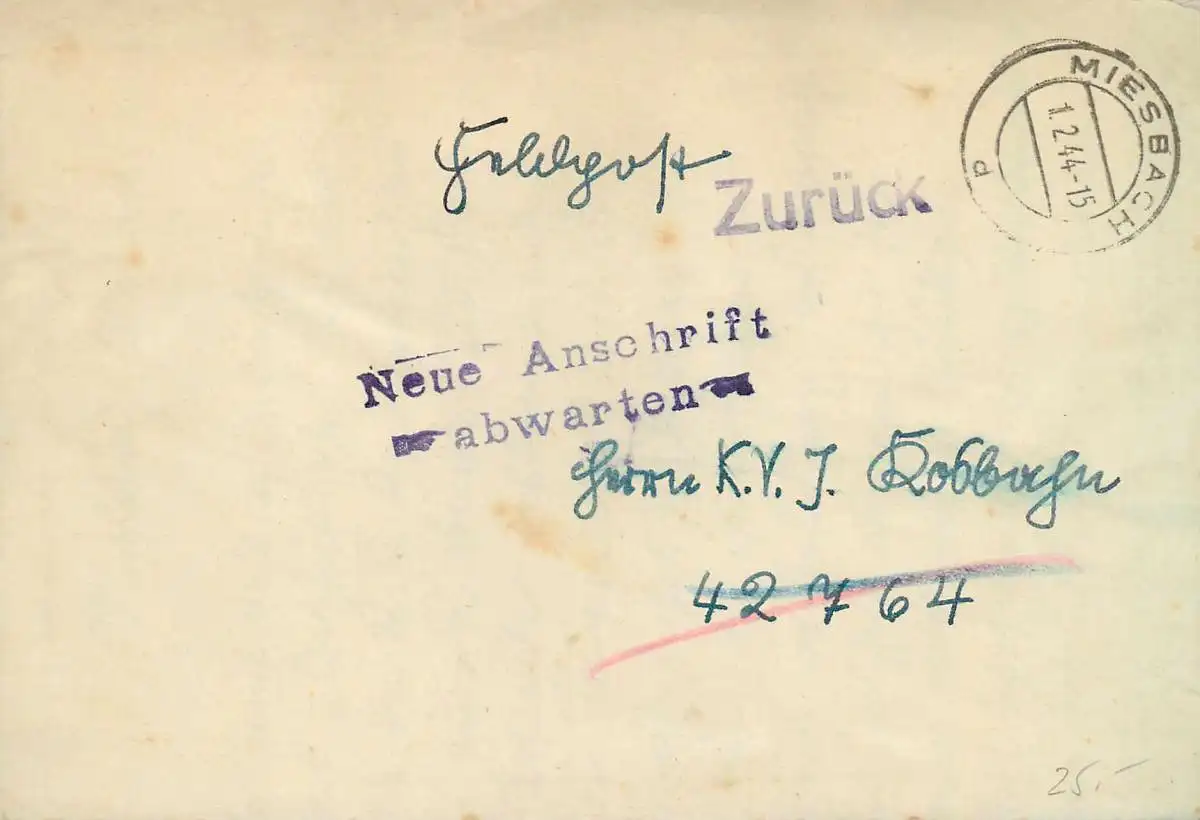 MIESBACH
1.2.44-15
d
Feldpost
Zurück
Neue Anschrift
abwarten
Herrn K.V.I. Kosbahn
42764
25.-